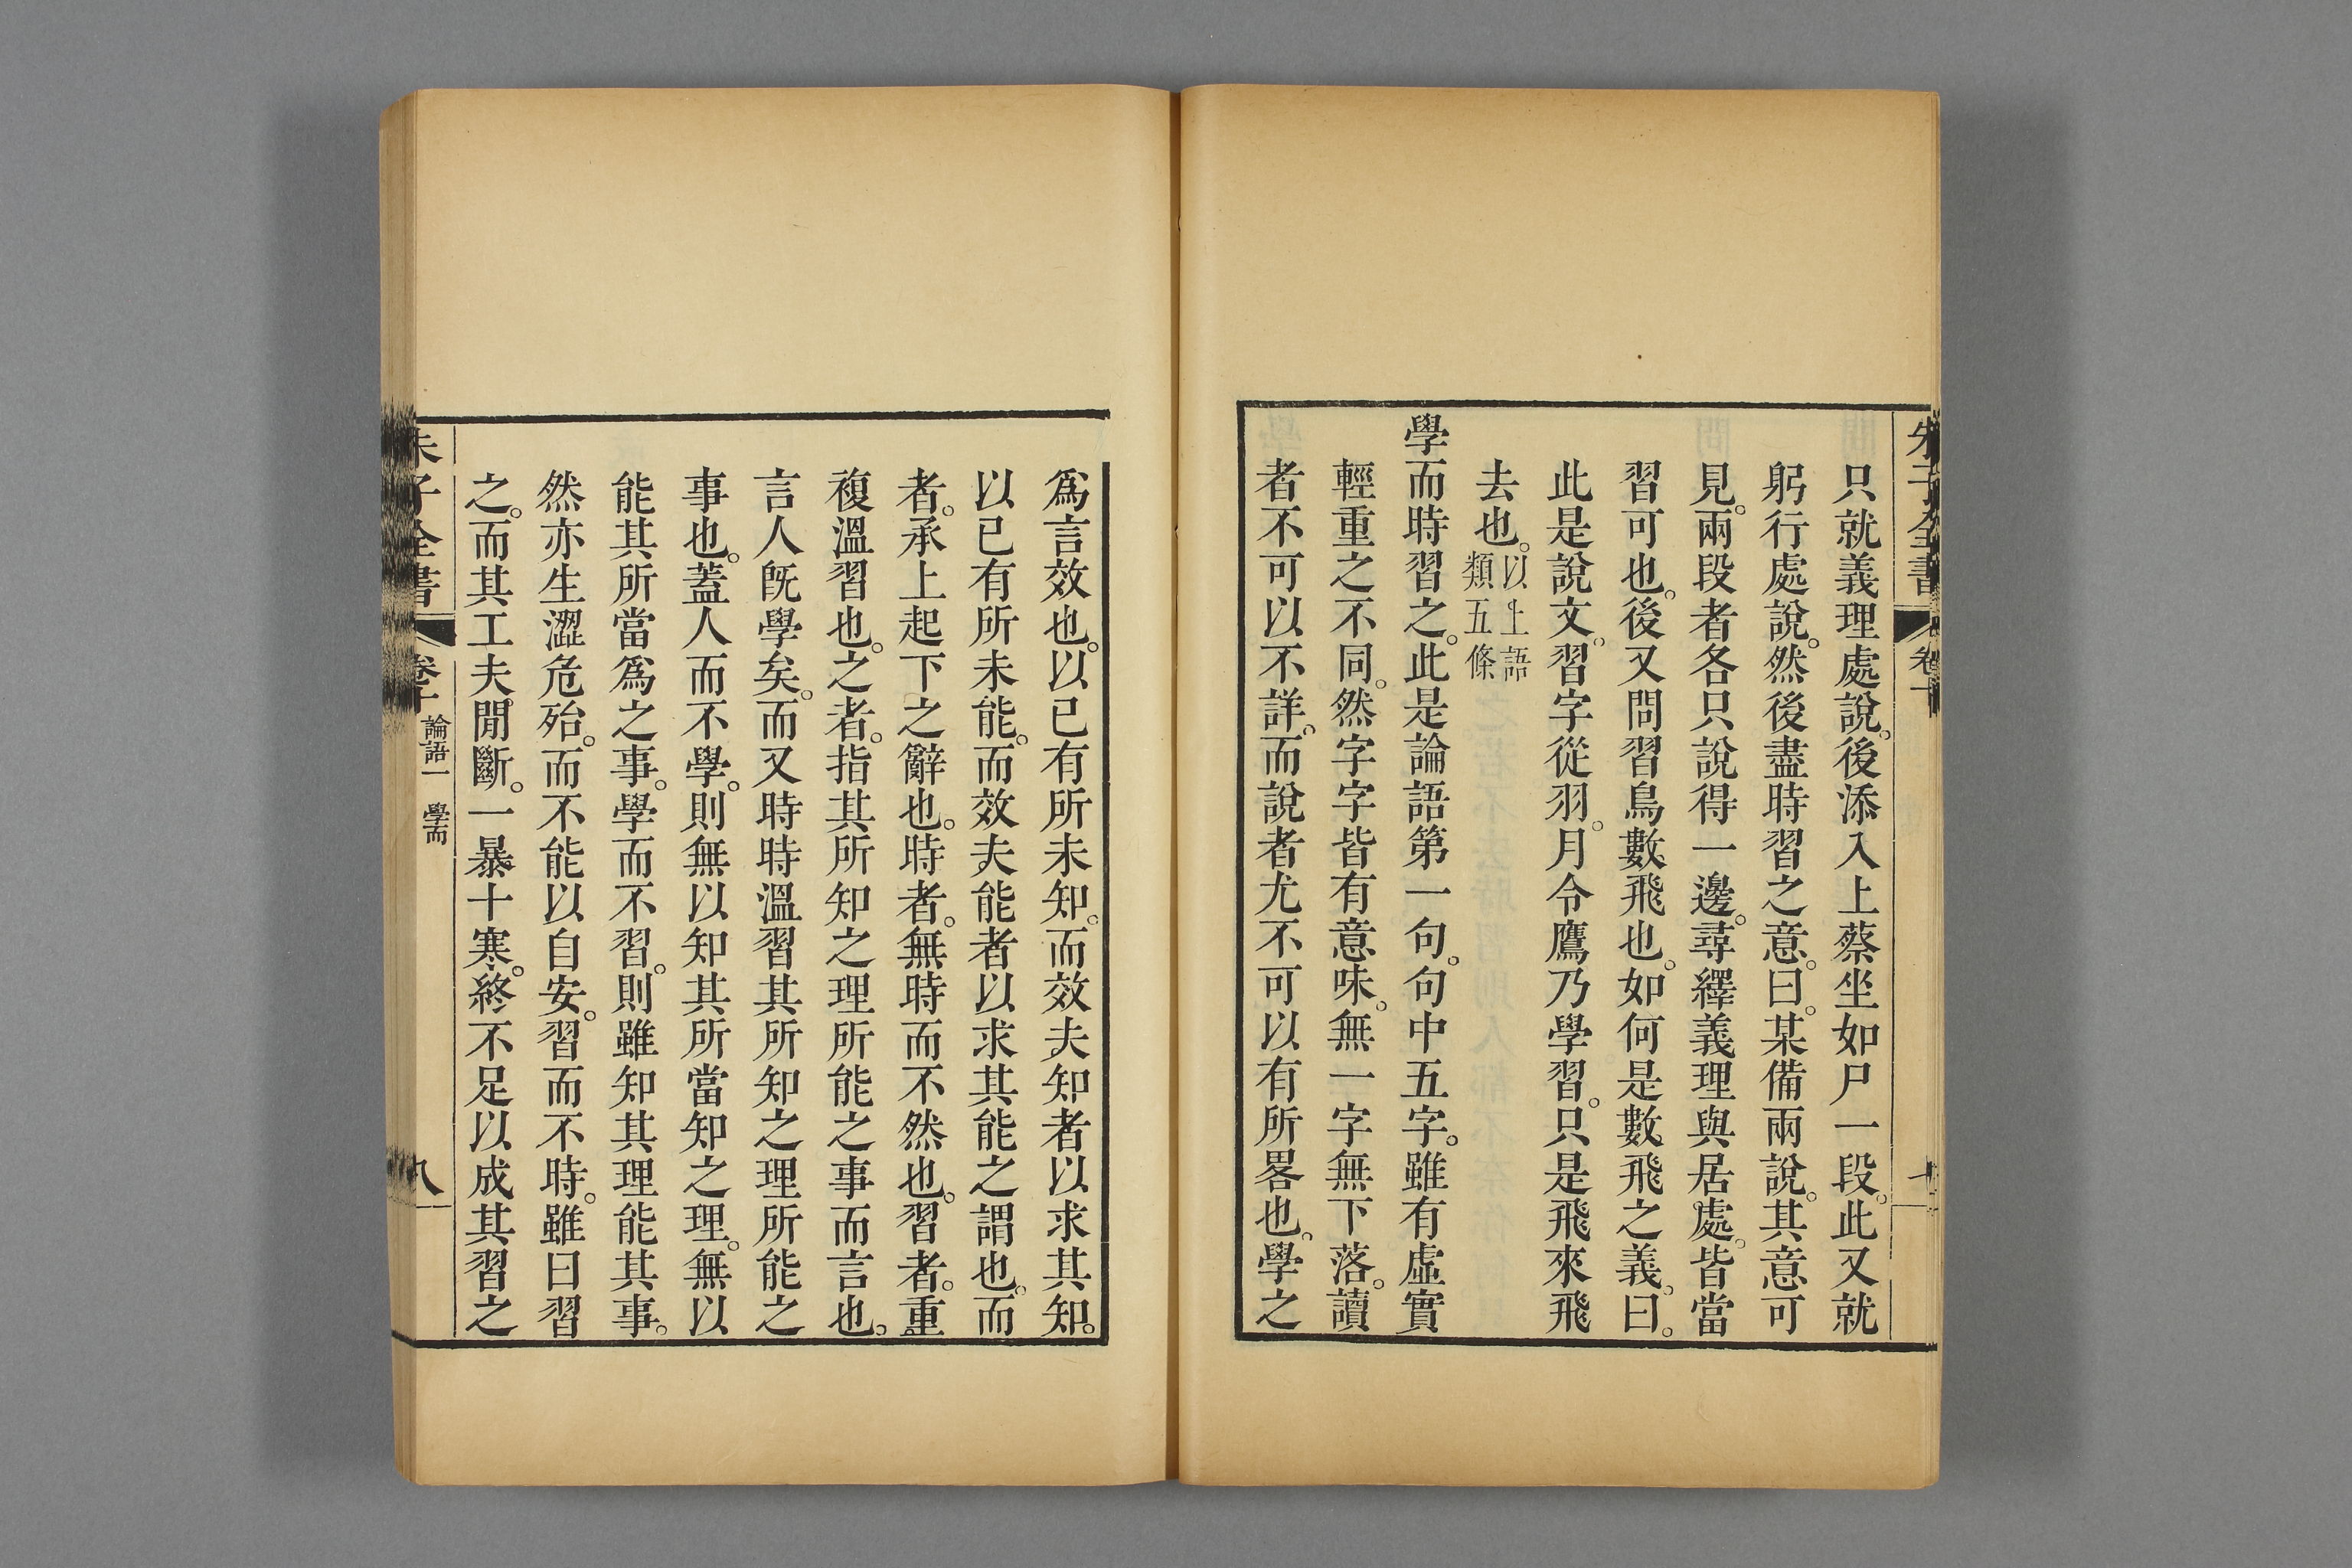 只就義理處說。後添入上蔡坐如尸一段。此又就
躬行處說。然後盡時習之意。曰。某備兩說。其意可
見。兩段者各只說得一邊。尋繹義理與居處。皆當
習可也。後又問習鳥數飛也。如何是數飛之義。曰。
此是說文。習字從羽。月令鷹乃學習。只是飛來飛
去也。以上語類五條
學而時習之。此是論語第一句。句中五字。雖有虛實
輕重之不同。然字字皆有意味。無一字無下落。讀
者不可以不詳。而說者尤不可以有所畧也。學之
爲言效也。以已有所未知。而效夫知者以求其知。
以已有所未能。而效夫能者以求其能之謂也。而
者。承上起下之辭也。時者。無時而不然也。習者。重
複溫習也。之者。指其所知之理所能之事而言也。
言人旣學矣。而又時時溫習其所知之理所能之
事也。蓋人而不學。則無以知其所當知之理。無以
能其所當爲之事。學而不習。則雖知其理能其事。
然亦生澀危殆。而不能以自安。習而不時。雖曰習
之。而其工夫。閒斷。一暴十寒。終不足以成其習之
朱子全書 卷十 論語一 學而 八